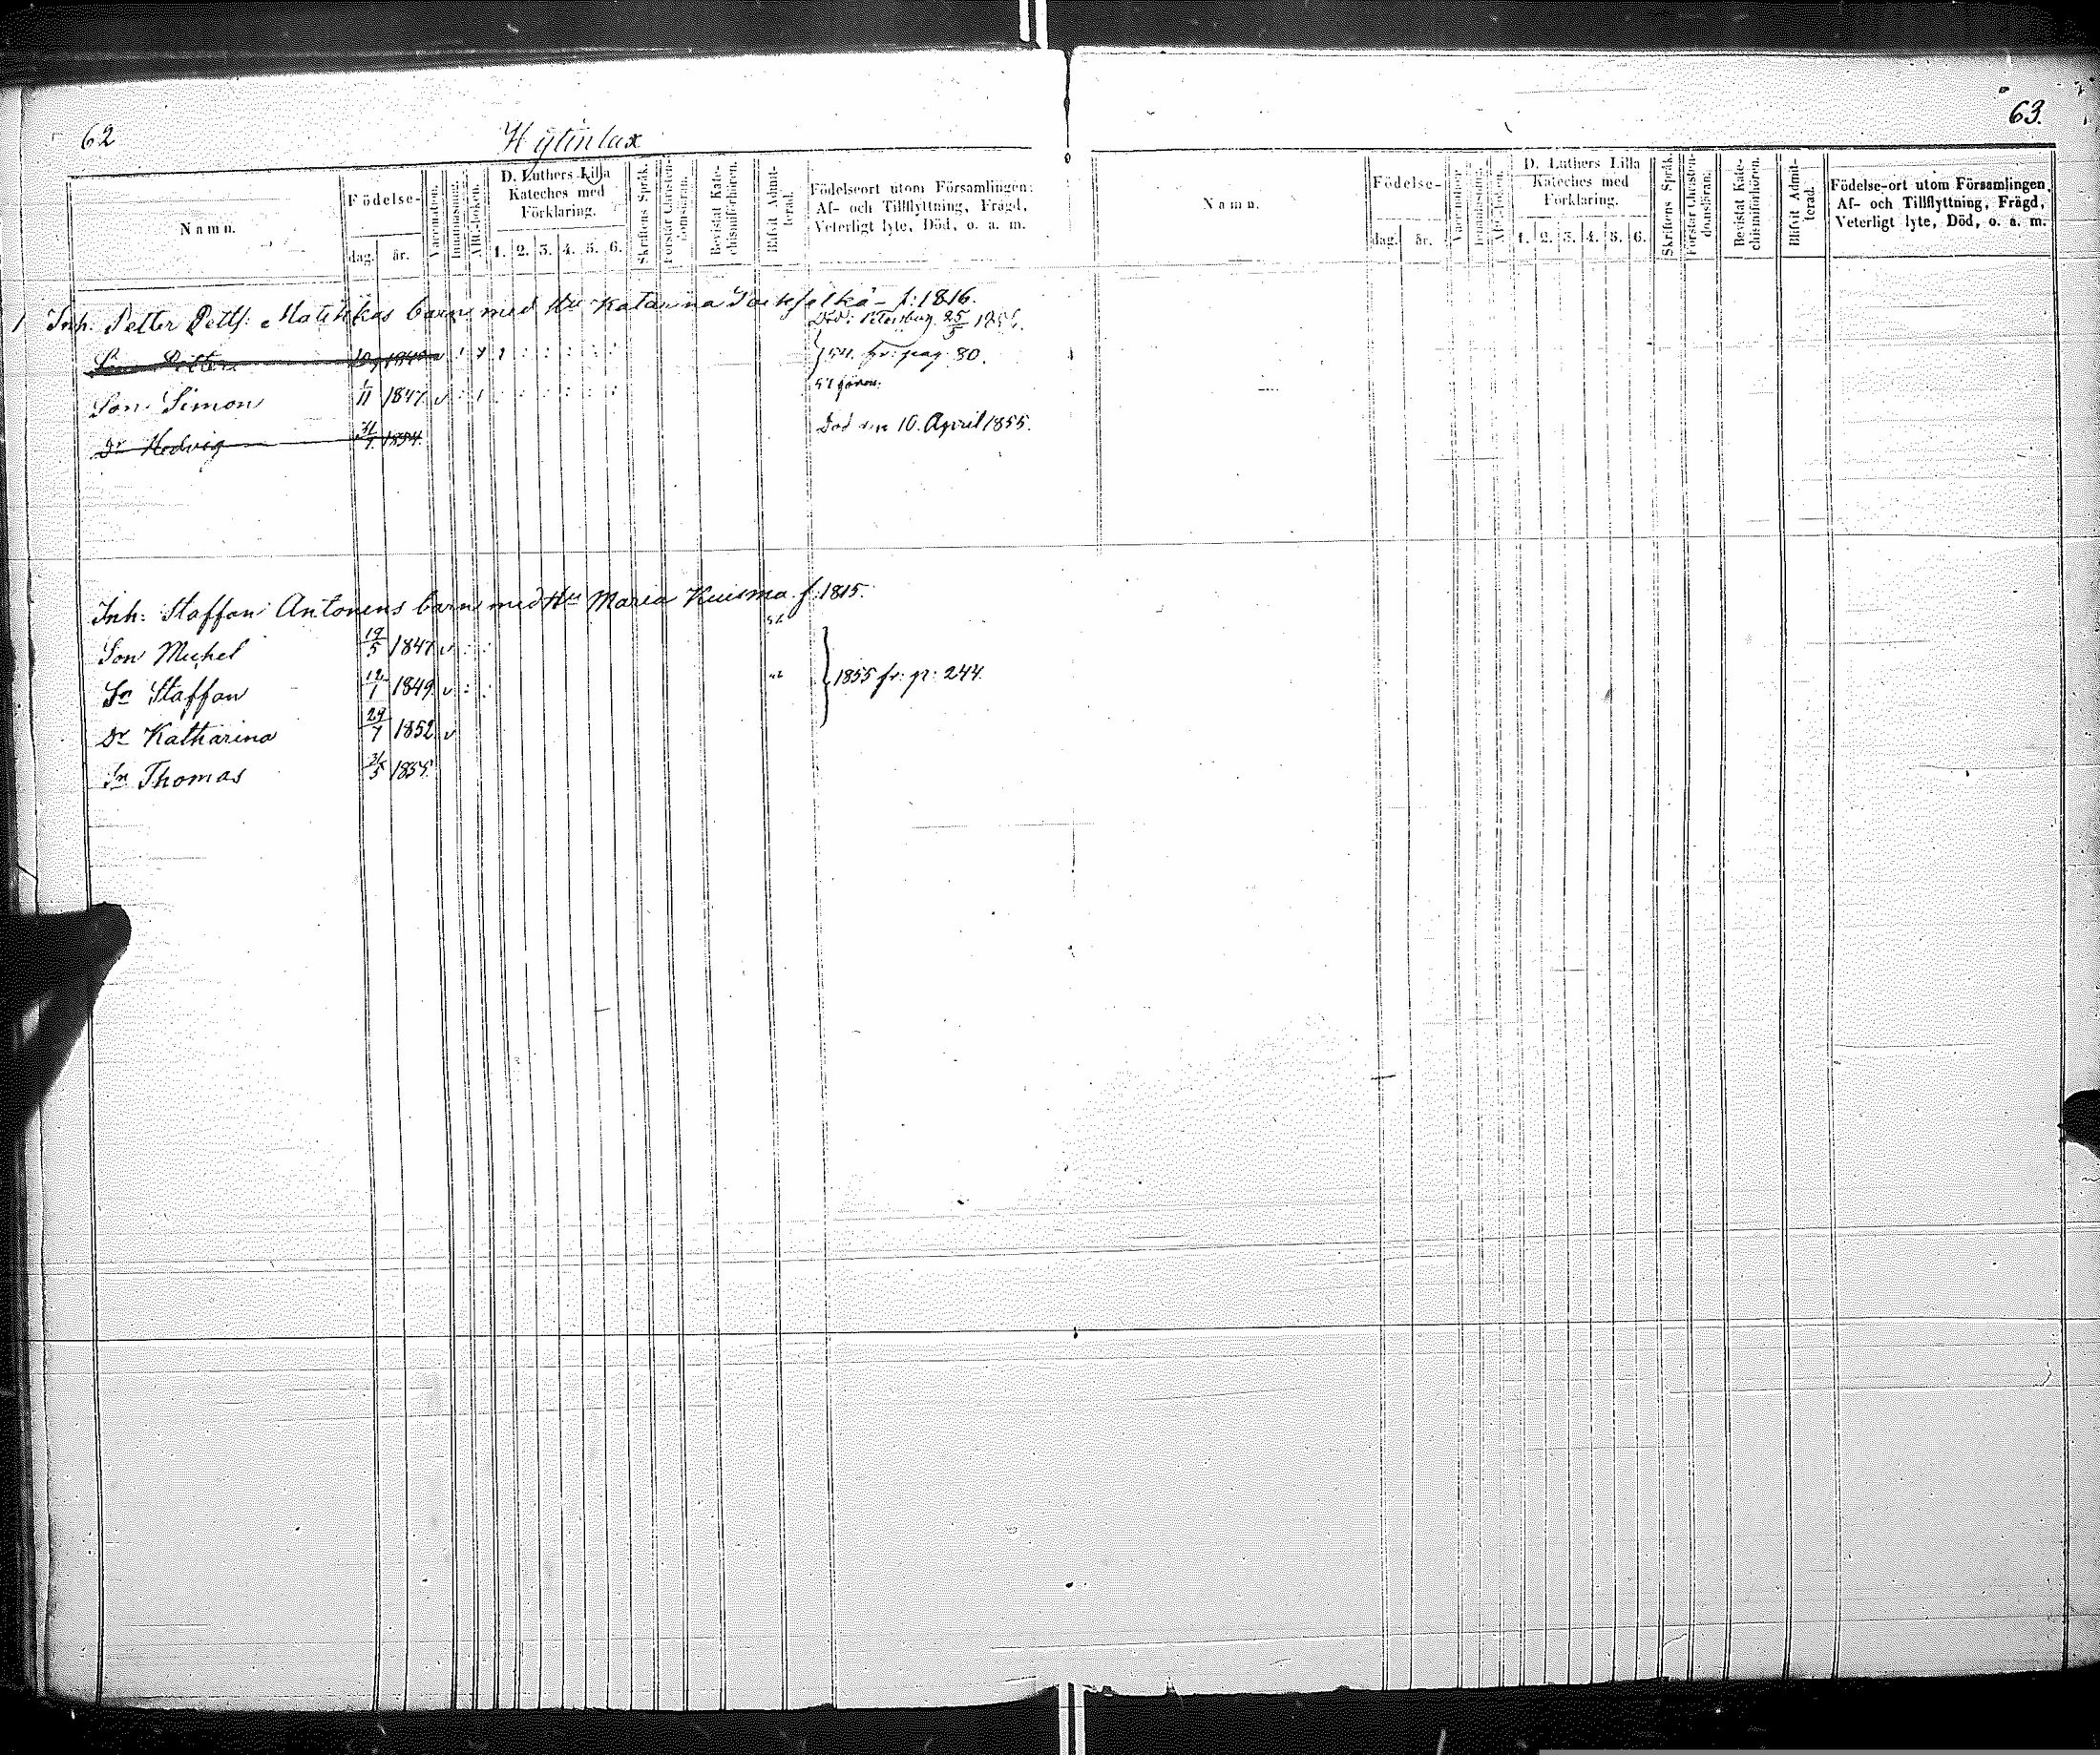 62
Hytinlax
Namn.
Födelse-
dag.
år.
Vaccination.
Innanläsning.
ABC-boken.
D. Luthers Lilla
Kateches med
Förklaring.
1. 2. 3. 4. 5. 6.
Skriftens Språk.
Förstår Christen-
domsläran.
Bevistat Kate-
chismiförhören.
Blifvit Admit-
terad.
Födelseort utom Församlingen:
Af- och Tillflyttning, Frägd,
Veterligt lyte, Död, o. a. m.
1 Inh. Petter Petts: Matikkas barn med Hu Katarina f: 1816.
Död i Petersburg 25/5
Son Petter
54. fr: pag. 80.
Son Simon 1/11 1847
Dr Hedvig 31/7 1854.
Död den 10. April 1855.
Inh: Staffan Antonens barn med Hu Maria Kuisma f. 1815.
Son Michel 19/5 1847
Sn Staffan 12/1 1849
1855 fr: p: 244.
Dr Katharina 29/7 1852
Sn Thomas 1855
63.
Namn.
Födelse-
dag. år.
Vaccination.
Innanläsning.
ABC-boken.
D. Luthers Lilla
Kateches med
Förklaring.
1. 2. 3. 4. 5. 6.
Skriftens Språk.
Förstår Christen-
domsläran.
Bevistat Kate-
chismiförhören.
Blifvit Admit-
terad.
Födelse-ort utom Församlingen,
Af- och Tillflyttning, Frägd,
Veterligt lyte, Död, o. a. m.